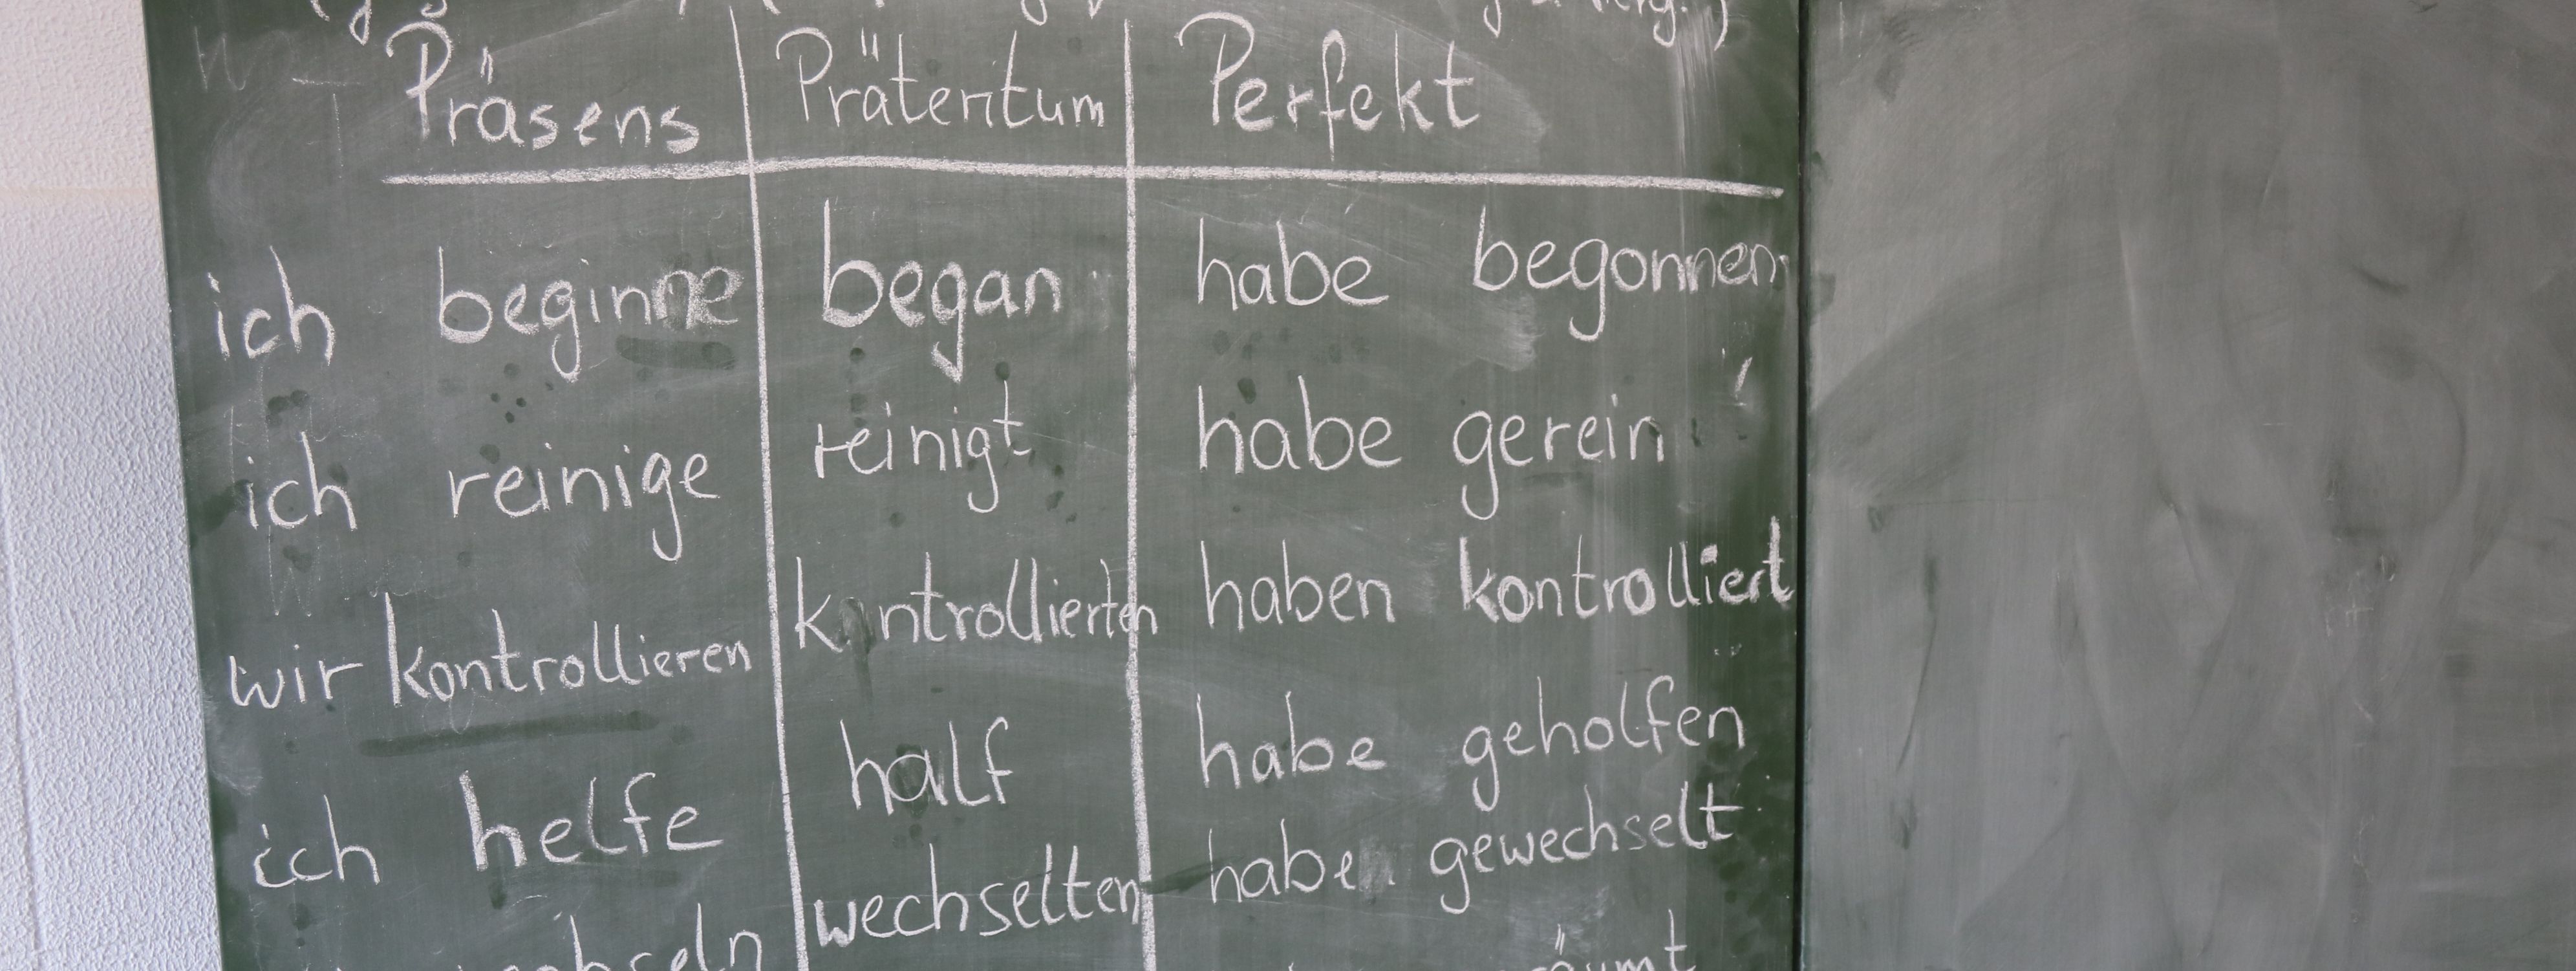 Präsens Präteritum Perfekt
ich beginne began habe begonnen
ich reinige reinigt habe gerein
wir kontrollieren kontrollierten haben kontrolliert
ich helfe half habe geholfen
wechselten habe gewechselt